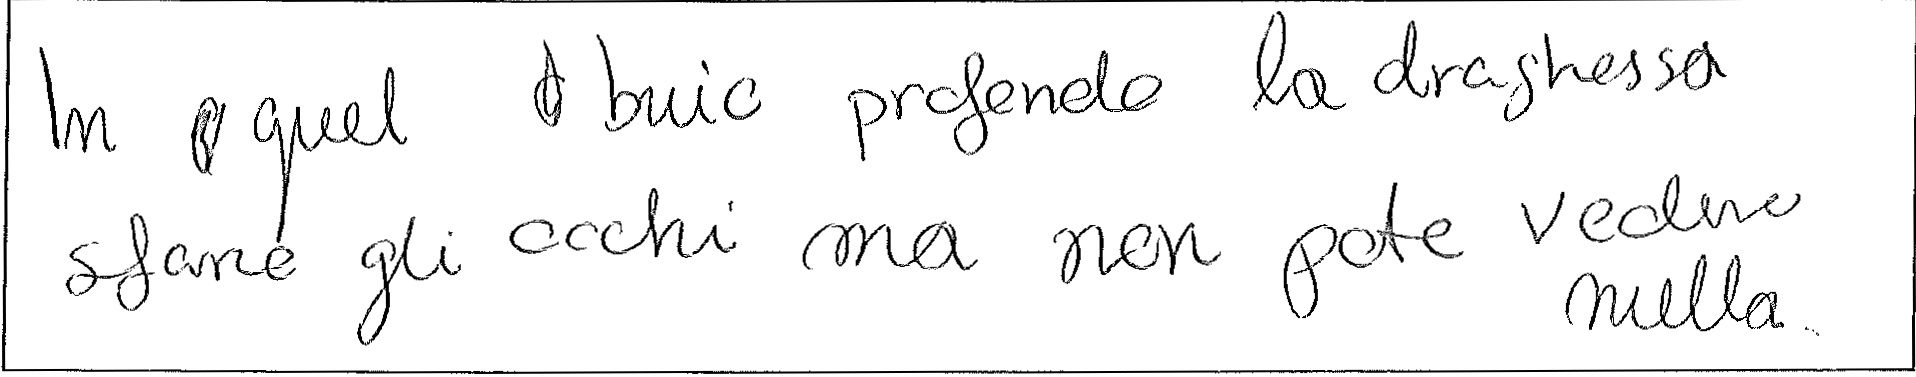 In quel buio profondo la draghessa
sfane gli occhi ma non pote vedere
nulla.